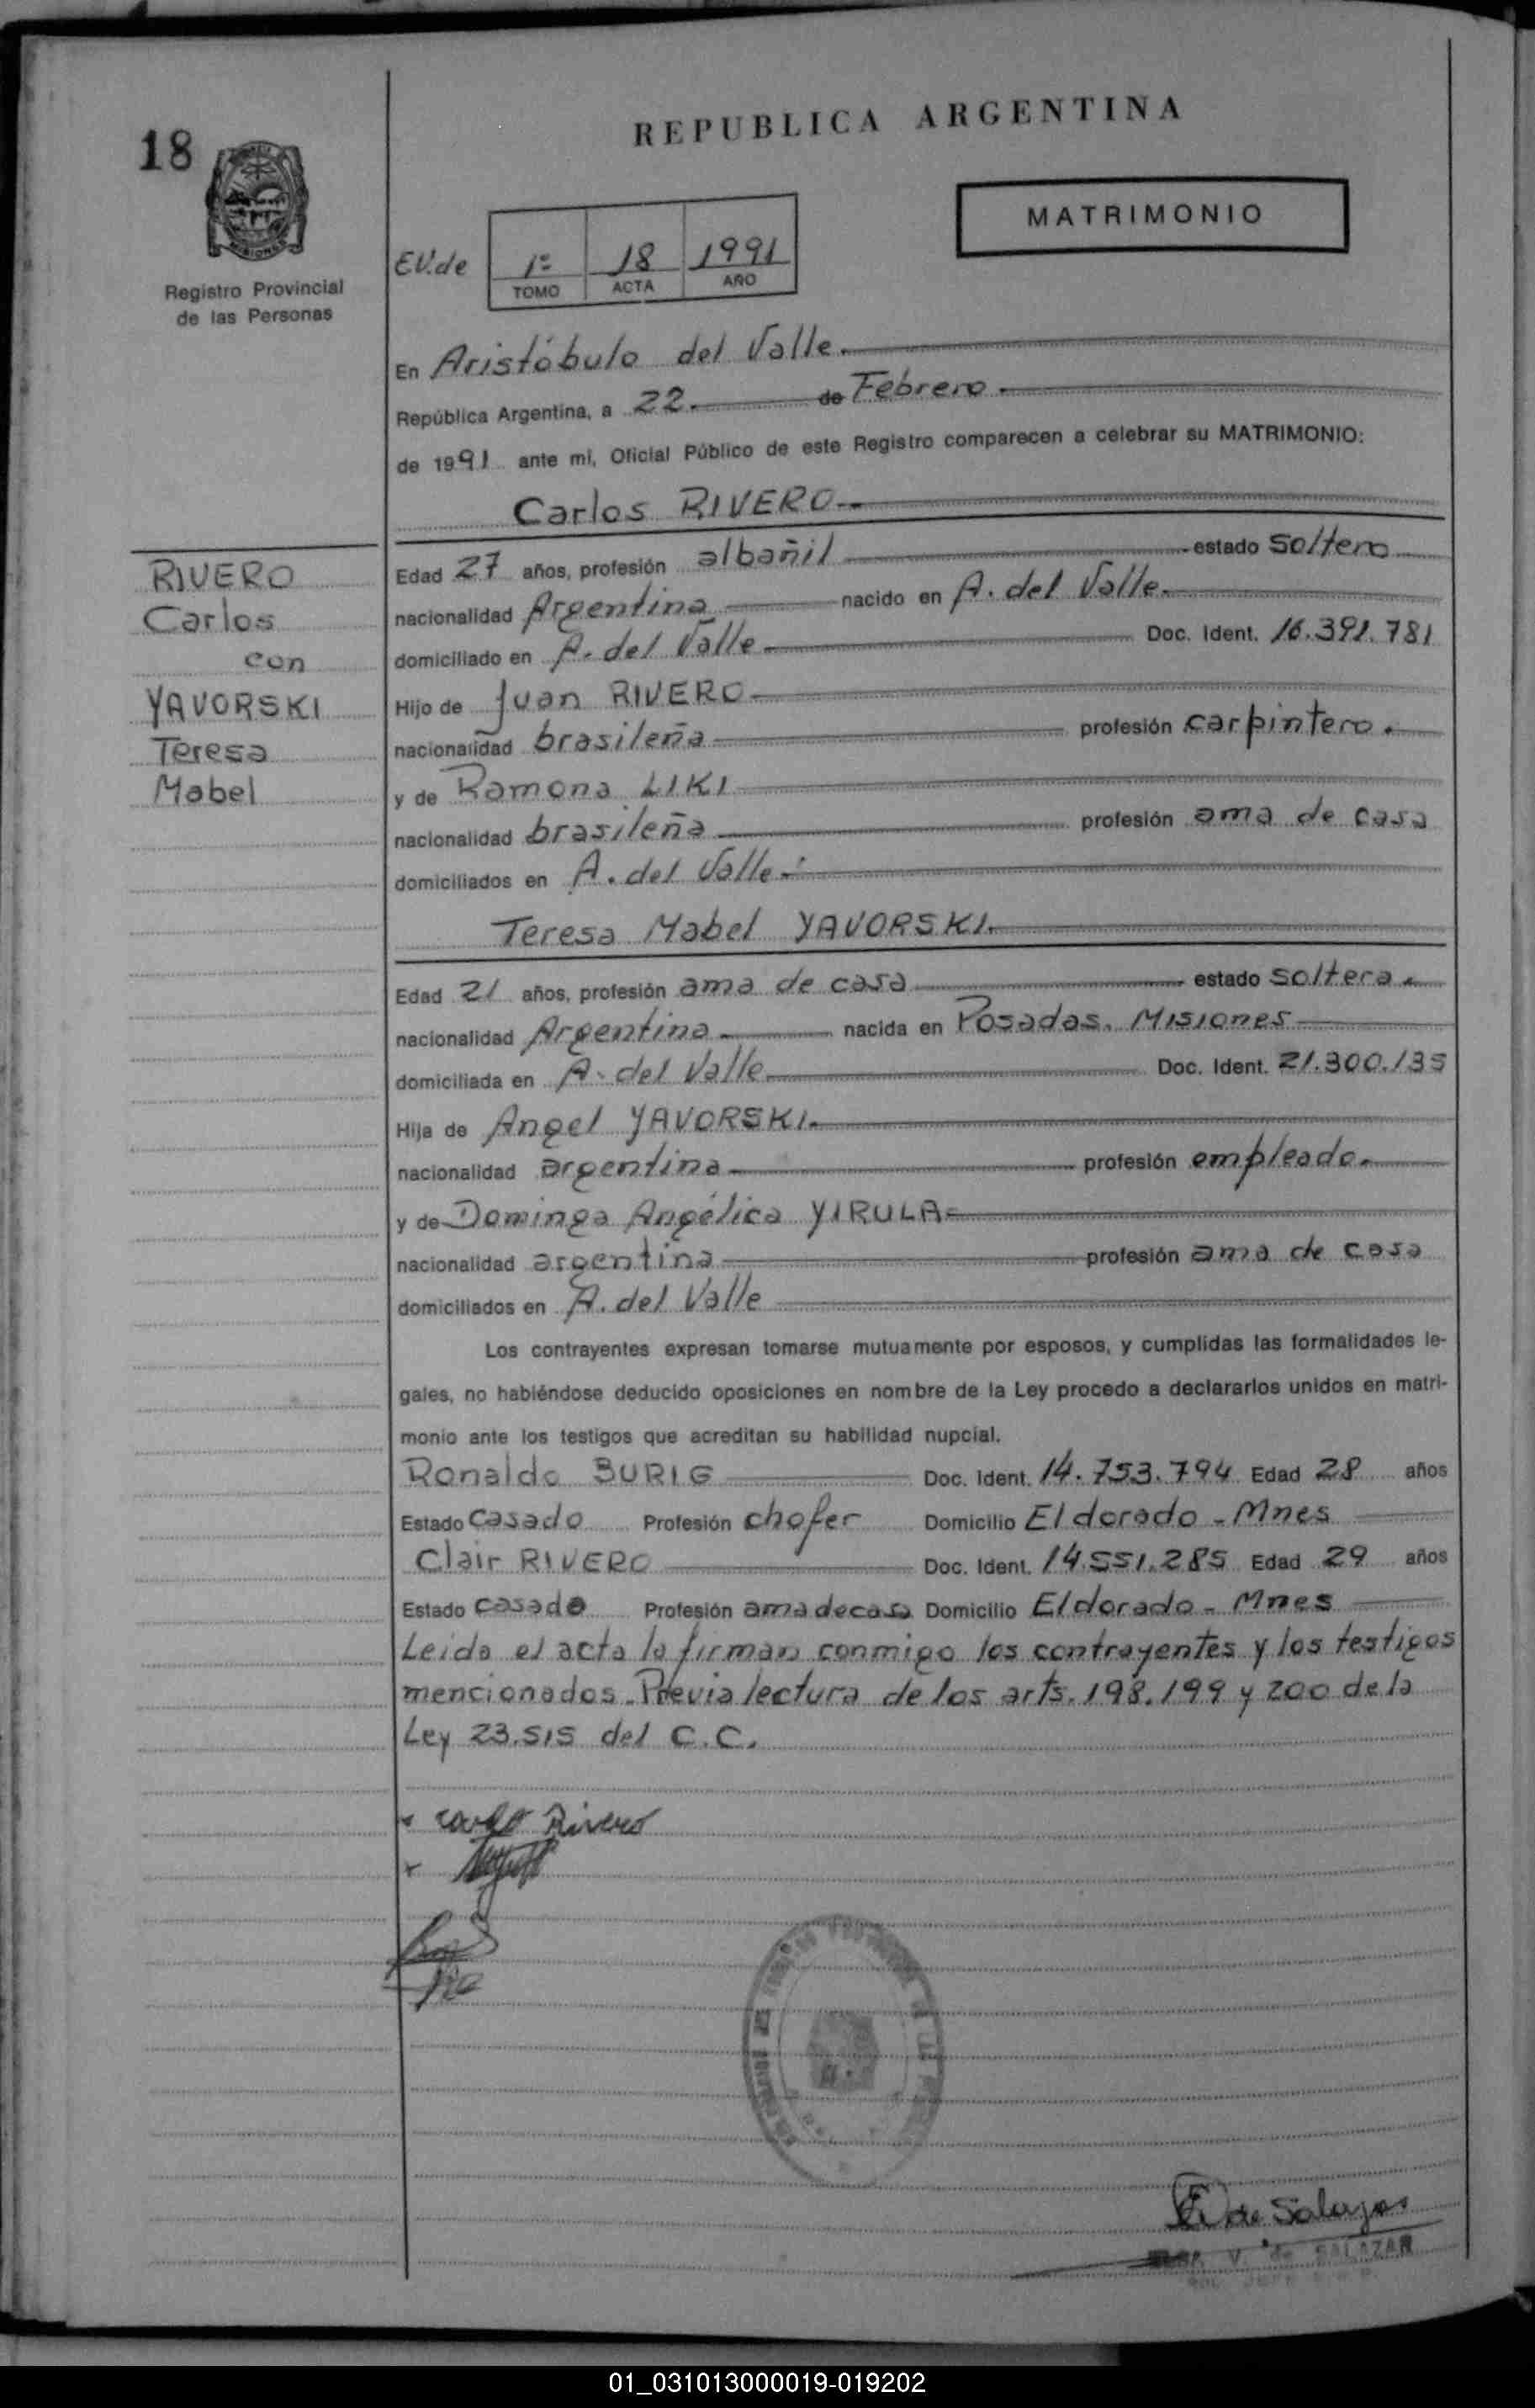 REPUBLICA ARGENTINA
18
MATRIMONIO
EV.de
1º 18 1991
TOMO ACTA AÑO
Registro Provincial
de las Personas
En Aristóbulo del Valle.
República Argentina, a 22. de Febrero.
de 1991 ante mi, Oficial Público de este Registro comparecen a celebrar su MATRIMONIO:
Carlos RIVERO.
RIVERO
Carlos
con
YAVORSKI
Teresa
Mabel
Edad 27 años, profesión albañil estado soltero
nacionalidad Argentina nacido en A. del Valle.
domiciliado en A. del Valle. Doc. Ident. 16.391.781
Hijo de Juan RIVERO
nacionalidad brasileña profesión carpintero.
y de Ramona LIKI
nacionalidad brasileña profesión ama de casa
domiciliados en A. del Valle.
Teresa Mabel YAVORSKI.
Edad 21 años, profesión ama de casa estado soltera.
nacionalidad Argentina nacida en Posadas. Misiones
domiciliada en A. del Valle. Doc. Ident. 21.300.135
Hija de Angel YAVORSKI.
nacionalidad argentina profesión empleado.
y de Dominga Angélica YIRULA
nacionalidad argentina profesión ama de casa
domiciliados en A. del Valle
Los contrayentes expresan tomarse mutuamente por esposos, y cumplidas las formalidades le-
gales, no habiéndose deducido oposiciones en nombre de la Ley procedo a declararlos unidos en matri-
monio ante los testigos que acreditan su habilidad nupcial.
Ronaldo BURIG Doc. Ident. 14.753.794 Edad 28 años
Estado casado Profesión chofer Domicilio Eldorado - Mnes
Clair RIVERO Doc. Ident. 14.551.285 Edad 29 años
Estado casada Profesión ama de casa Domicilio Eldorado - Mnes
Leída el acta la firman conmigo los contrayentes y los testigos
mencionados. Previa lectura de los arts. 198.199 y 200 de la
Ley 23.515 del C.C.
Carlos Rivero
de Salazar
V. de SALAZAR
01_031013000019-019202